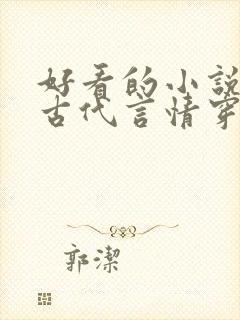 好看的小說
古代言情穿
郭潔